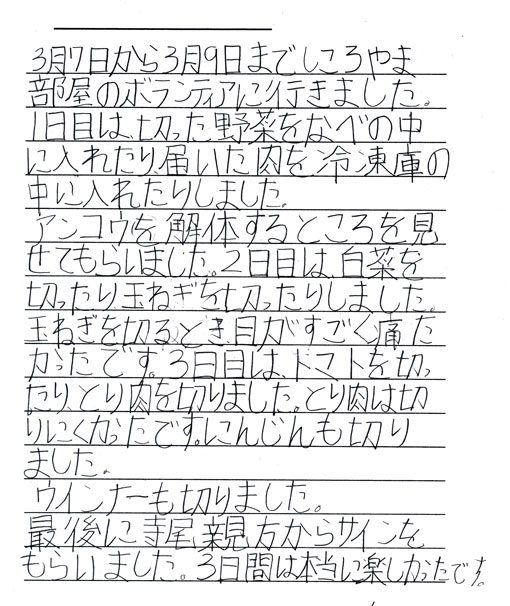 3月7日から3月9日までしころやま
部屋のボランティアに行きました。
1日目は、切った野菜をなべの中
に入れたり、届いた肉を冷凍庫の
中に入れたりしました。
アンコウを解体するところを見
せてもらいました。2日目は、白菜を
切ったり玉ねぎを切ったりしました。
玉ねぎを切るとき、目がすごく痛た
かったです。3日目は、トマトを切っ
たり、とり肉を切りました。とり肉は切
りにくかったです。にんじんも切り
ました。
ウインナーも切りました。
最後に寺尾親方からサインを
もらいました。3日間は本当に楽しかったです。